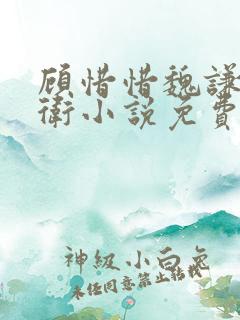 顾惜惜魏謙
衛小説免費
神级小白兔
未经同意禁止转载